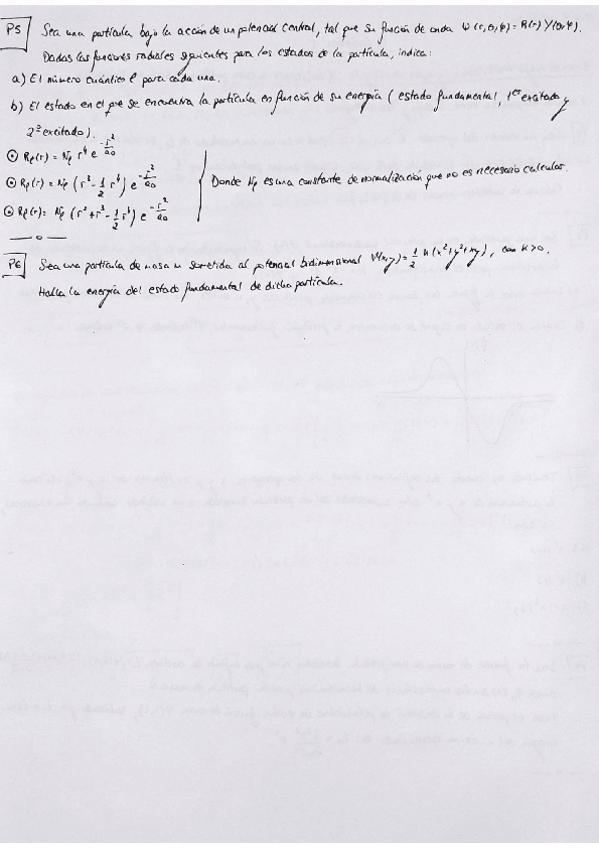 P5 Sea una partícula bajo la acción de un potencial central, tal que su función de onda Ψ(r,θ,φ) = R(r) Y(θ,φ).
Dadas las funciones radiales siguientes para los estados de la partícula, indica:
a) El número cuántico ℓ para cada una.
b) El estado en el que se encuentra la partícula en función de su energía (estado fundamental, 1er excitado y
2º excitado).
⊙ Rp(r) = Np r⁴ e^(-r²/a₀)
⊙ Rp(r) = Np (r³ - 1/2 r⁴) e^(-r²/a₀)
⊙ Rp(r) = Np (r² + r³ - 1/2 r⁴) e^(-r²/a₀)
Donde Np es una constante de normalización que no es necesario calcular.
P6 Sea una partícula de masa m sometida al potencial bidimensional V(x,y) = 1/2 k(x² + y² + xy), con k>0.
Halla la energía del estado fundamental de dicha partícula.